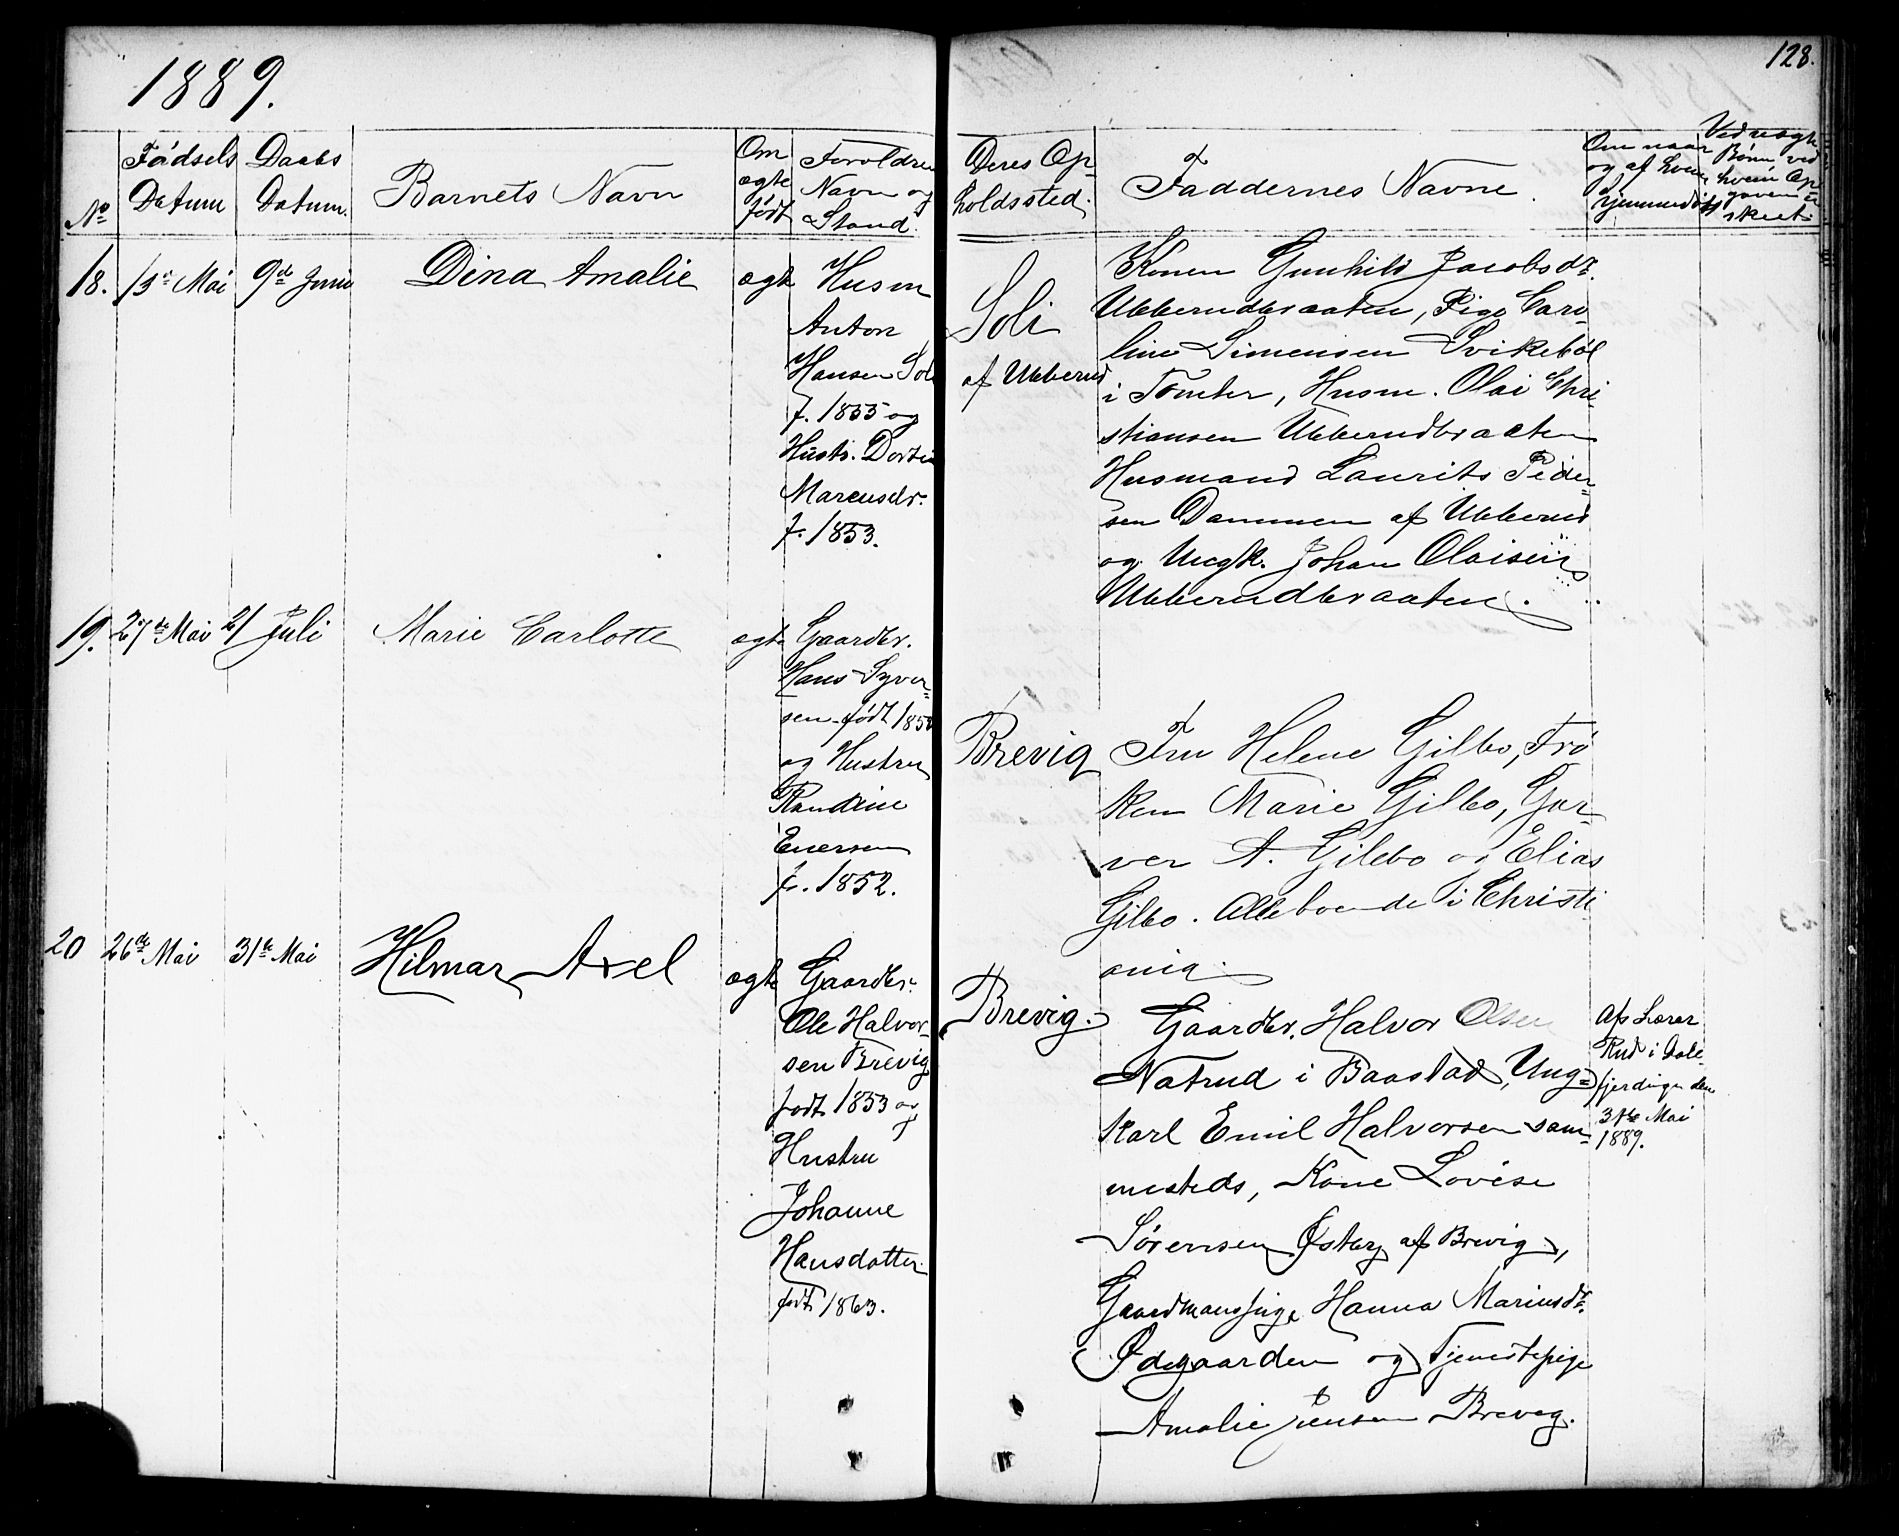 1889.
128.
No
Fødsels Datum
Daabs Datum.
Barnets Navn
Om ægte født
Foroldre Navn og Stand.
Deres Op-
holdssted.
Faddernes Navne
Om naar og af hvem hjemmedøbt
Ved uægte Børn ved hvem Op
given er skeet.
18. 13de Mai 9de Juni Dina Amalie ægte Husm
Anton
Hansen Soli
f. 1855 og
Hustr. Dortea
Marcusdr.
f. 1853.
Soli
af Ubberud
Konen Gunhild Jacobsdr.
Ubberudbraaten, Pige Caro-
line Simensen Svikebøl
i Tomter, Husm. Olai Chri-
stiansen Ubberudbraaten
Husmand Laurits Peder-
sen Dammen af Ubberud
og Ungk. Johan Olaisen
Ubberudbraaten.
19. 27de Mai 21 Juli Marie Carlotte ægte Gaardbr.
Hans Syver-
sen født 185
og Hustru
Randine
Enersen
f. 1852.
Brevig
Fru Helene Gilbo, Frø
ken Marie Gilbo, Gar-
ver A. Gilbo og Elias
Gilbo. Alle boende i Christi
ania.
20 26de Mai 31te Mai Hilmar Axel ægte Gaardbr.
Ole Halvor-
sen Brevig
født 1853 og
Hustru
Johanne
Hansdatter
født 1863.
Brevig.
Gaardbr. Halvor Olsen
Natrud i Baastad, Ung-
karl Emil Halvorsen sam-
mesteds, Kone Lovise
Sørensen Østby af Brevig,
Gaardmanspige Hanna Mariusdr.
Ødegaarden og Tjenestepige
Amalie Jensen Brevig.
Af Lærer
Rud i Dale-
fjerdingen den
31te Mai
1889.